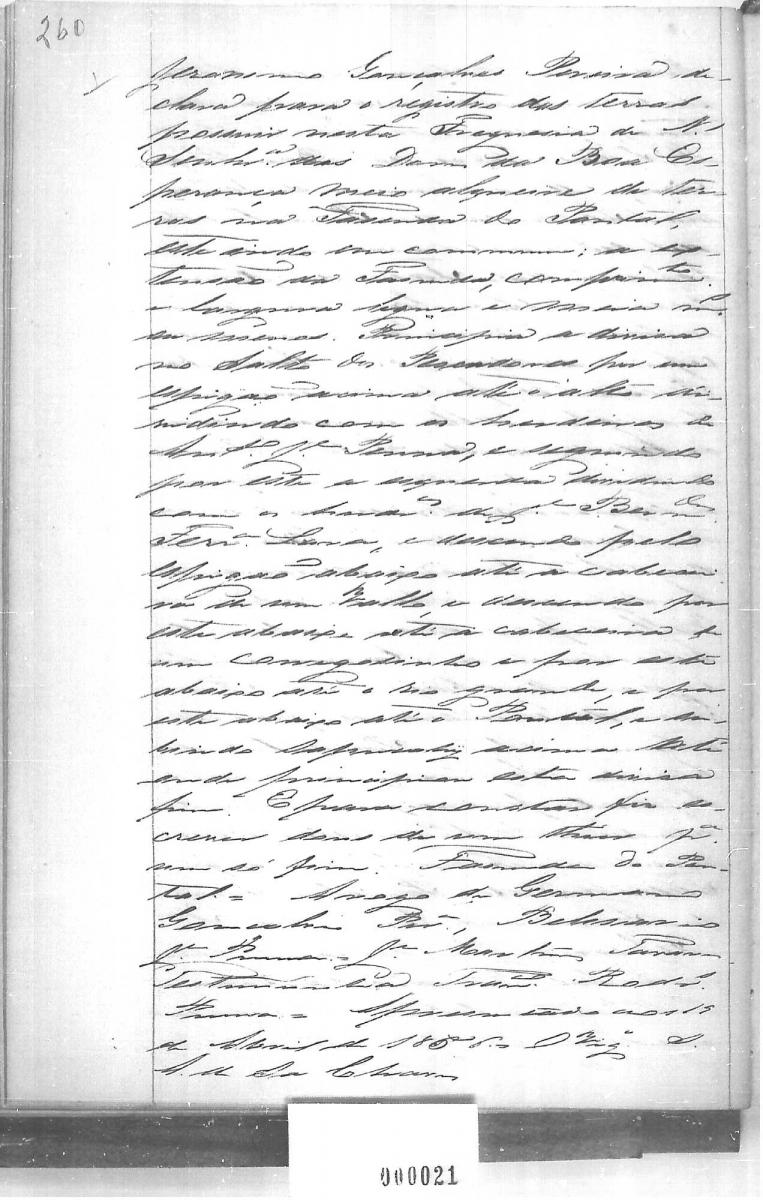 260
Jeronimo Gonçalves Pereira de-
clara para o registro das terras
possuir nesta Freguesia de N.
Senhrª das Dores da Boa Es-
perança meio alqueire de ter-
ras na Fazenda do Pontal,
este ainda em commum; a ex-
tensão da Fazenda, comprimto
e largura legua e meia ms
ou menos. Principia a divisa
no Salto dos Pescadores por um
espigão acima até o alto di-
vidindo com os herdeiros de
Anto Je Penna, e seguindo
por este a esquerda dividindo
com os herdos de Je Berndes
Ferra Lara, e descendo pelo
espigão abaixo até a cabecei-
ra de um Vallo, e descendo por
este abaixo até a cabeceira de
um corregosinho e por este
abaixo até o rio grande, e por
este abaixo até o Pontal, e su-
bindo Sapucahy acima até
onde principiou esta divisa
fim. E para constar fiz es-
crever dous de um theor pª
um só fim. Fazenda do Pon-
tal = Arogo de Germano
Gonçalves Prª, Belisario
Je Penna = Je Martins
Testimunha Franco Rodrs
Penna = Apresentado aos 19
de Abril de 1856 = O Vigro
de Sa
000021